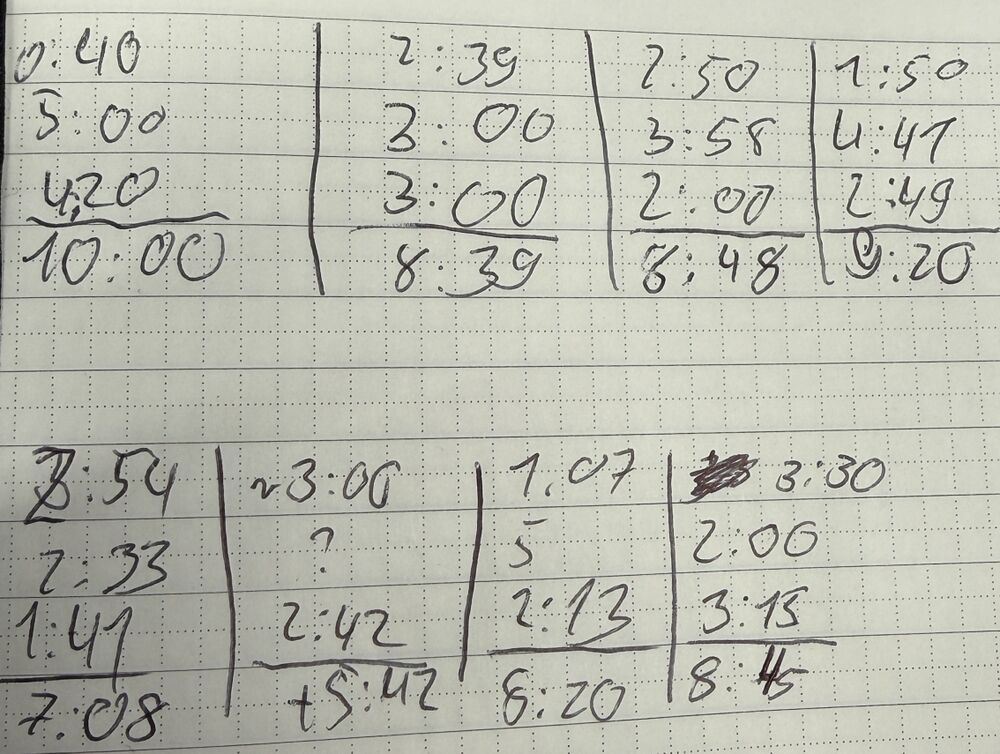 0:40 | 2:39 | 2:50 | 1:50
5:00 | 3:00 | 3:58 | 4:41
4:20 | 3:00 | 2:00 | 2:49
10:00 | 8:39 | 8:48 | 9:20
2:54 | ~3:00 | 1.07 | 3:30
2:33 | ? | 5 | 2:00
1:41 | 2:42 | 2:13 | 3:15
7:08 | +5:42 | 8:20 | 8:45